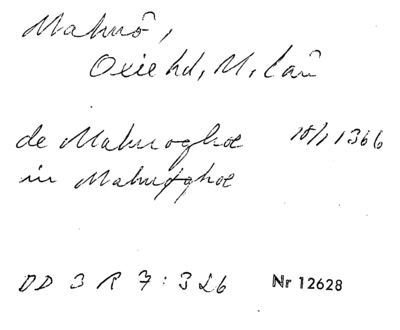 Malmö,
Oxie hd, M. län
de Malmoghæ 18/1 1366
in Malmøghæ
DD 3 R 7 : 326 Nr 12628